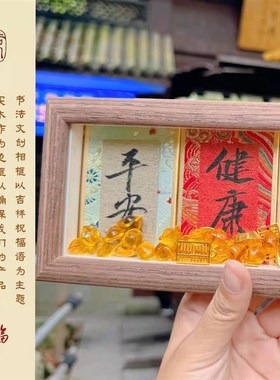 书法文创相框以吉祥祝福语为主题
实木作为边框以确保我们的产品
福
平安
健康